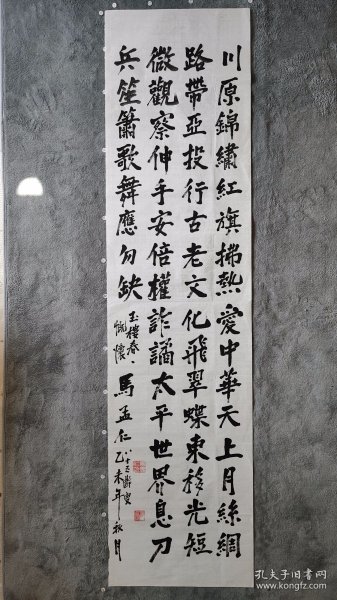 川原錦繡紅旗拂熱愛中華天上月絲綢
路帶亞投行古老文化飛翠蝶東移光短
微觀察伸手安倍權詐譎太平世界息刀
兵笙簫歌舞應勿缺
玉樓春、
慨懷
馬孟仁
八十五齡叟
乙未年秋月
孔夫子旧书网
kongfz.com